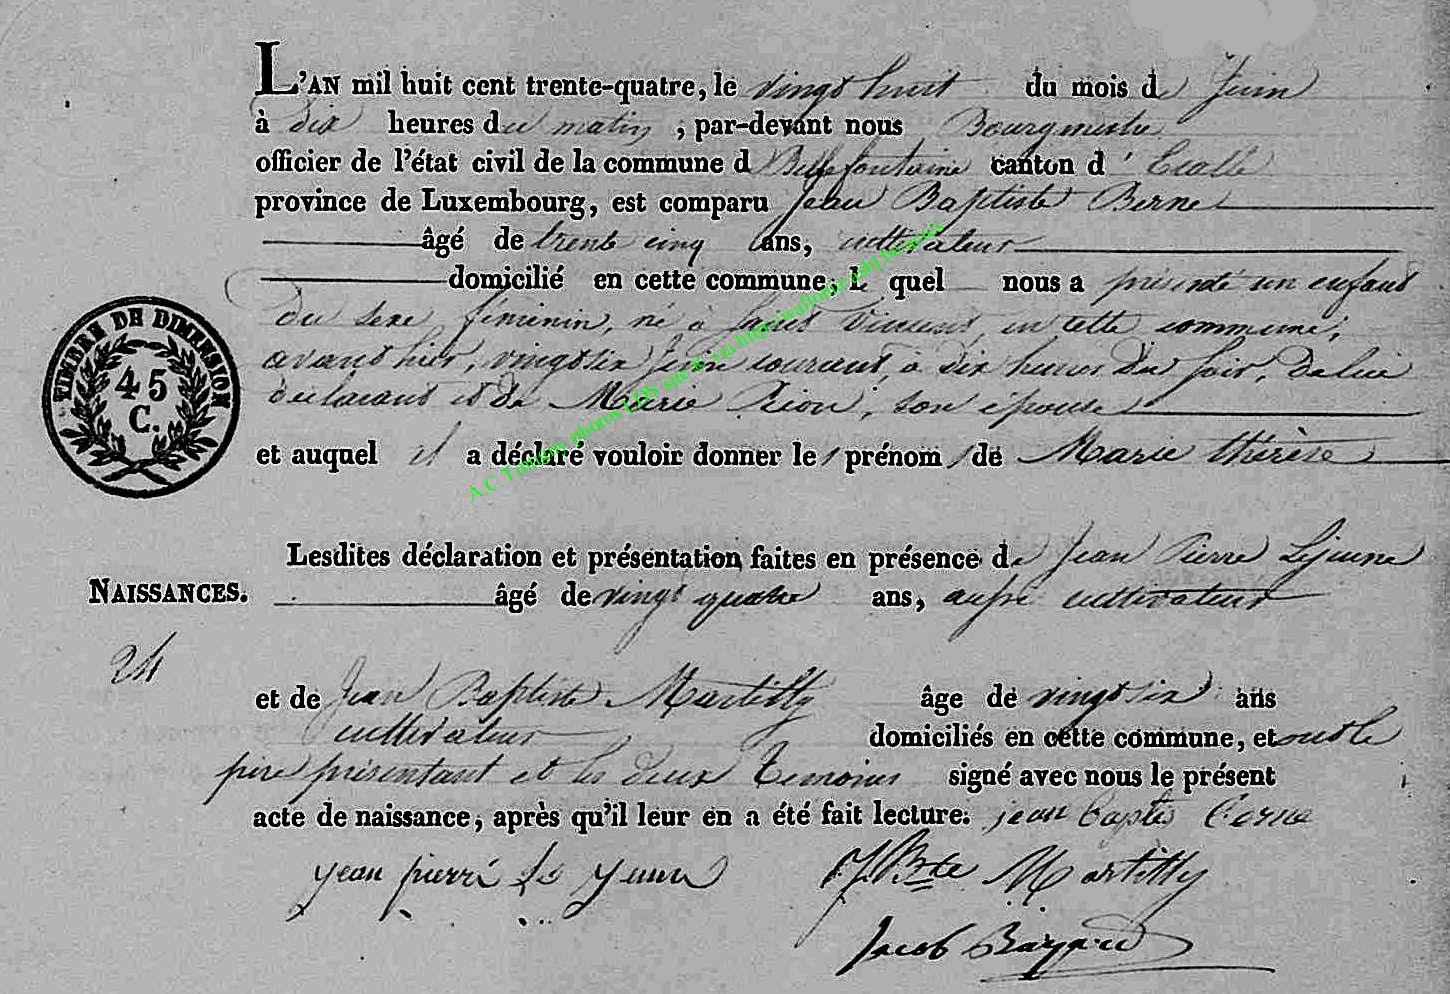 L'AN mil huit cent trente-quatre, le vingt huit du mois de Juin
à dix heures du matin, par-devant nous Bourgmestre
officier de l'état civil de la commune d Bellefontaine canton d' Etalle
province de Luxembourg, est comparu Jean Baptiste Berne
âgé de trente cinq ans, cultivateur
domicilié en cette commune, l quel nous a présenté un enfant
du sexe féminin, né à en cette commune,
avant hier, vingt six Juin courant, à dix heures du soir, de lui
déclarant et de Marie son épouse
et auquel il a déclaré vouloir donner les prénoms de Marie thérèse
TIMBRE DE DIMENSION
45
C.
Lesdites déclaration et présentation faites en présence de Jean Pierre Lejeune
NAISSANCES.
âgé de vingt quatre ans, aussi cultivateur
24
et de Jean Baptiste Martilly âge de vingt six ans
cultivateur domiciliés en cette commune, et ont le
père présentant et les deux temoins signé avec nous le présent
acte de naissance, après qu'il leur en a été fait lecture. jean baptis berne
jean pierre le jeune JBte Martilly
Jacob
A C Tintigny photos LDS site & via http://wallonia-asbl.be/actes